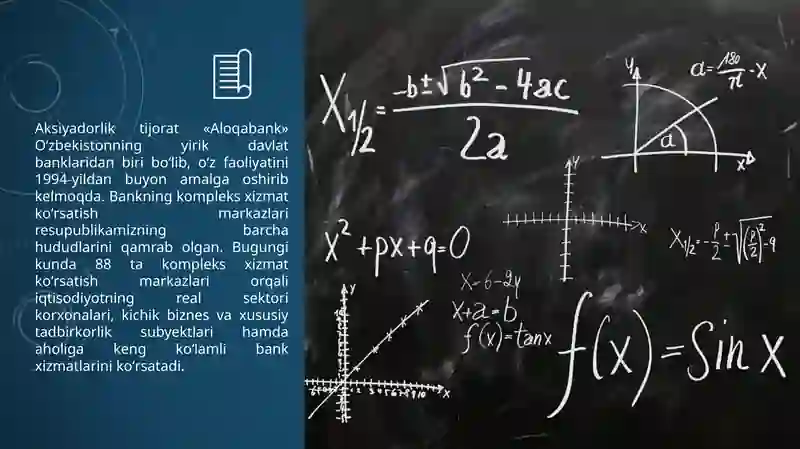 Aksiyadorlik tijorat «Aloqabank»
O‘zbekistonning yirik davlat
banklaridan biri bo‘lib, o‘z faoliyatini
1994-yildan buyon amalga oshirib
kelmoqda. Bankning kompleks xizmat
ko‘rsatish markazlari
resupublikamizning barcha
hududlarini qamrab olgan. Bugungi
kunda 88 ta kompleks xizmat
ko‘rsatish markazlari orqali
iqtisodiyotning real sektori
korxonalari, kichik biznes va xususiy
tadbirkorlik subyektlari hamda
aholiga keng ko‘lamli bank
xizmatlarini ko‘rsatadi.
X1/2 = -b±√b²-4ac / 2a
y
a = 180/π · x
a
x
y
x
x² + px + q = 0
X1/2 = -p/2 ± √(p/2)²-q
x = 6 - 2y
x + a = b
f(x) = tan x
f(x) = Sin x
y
x